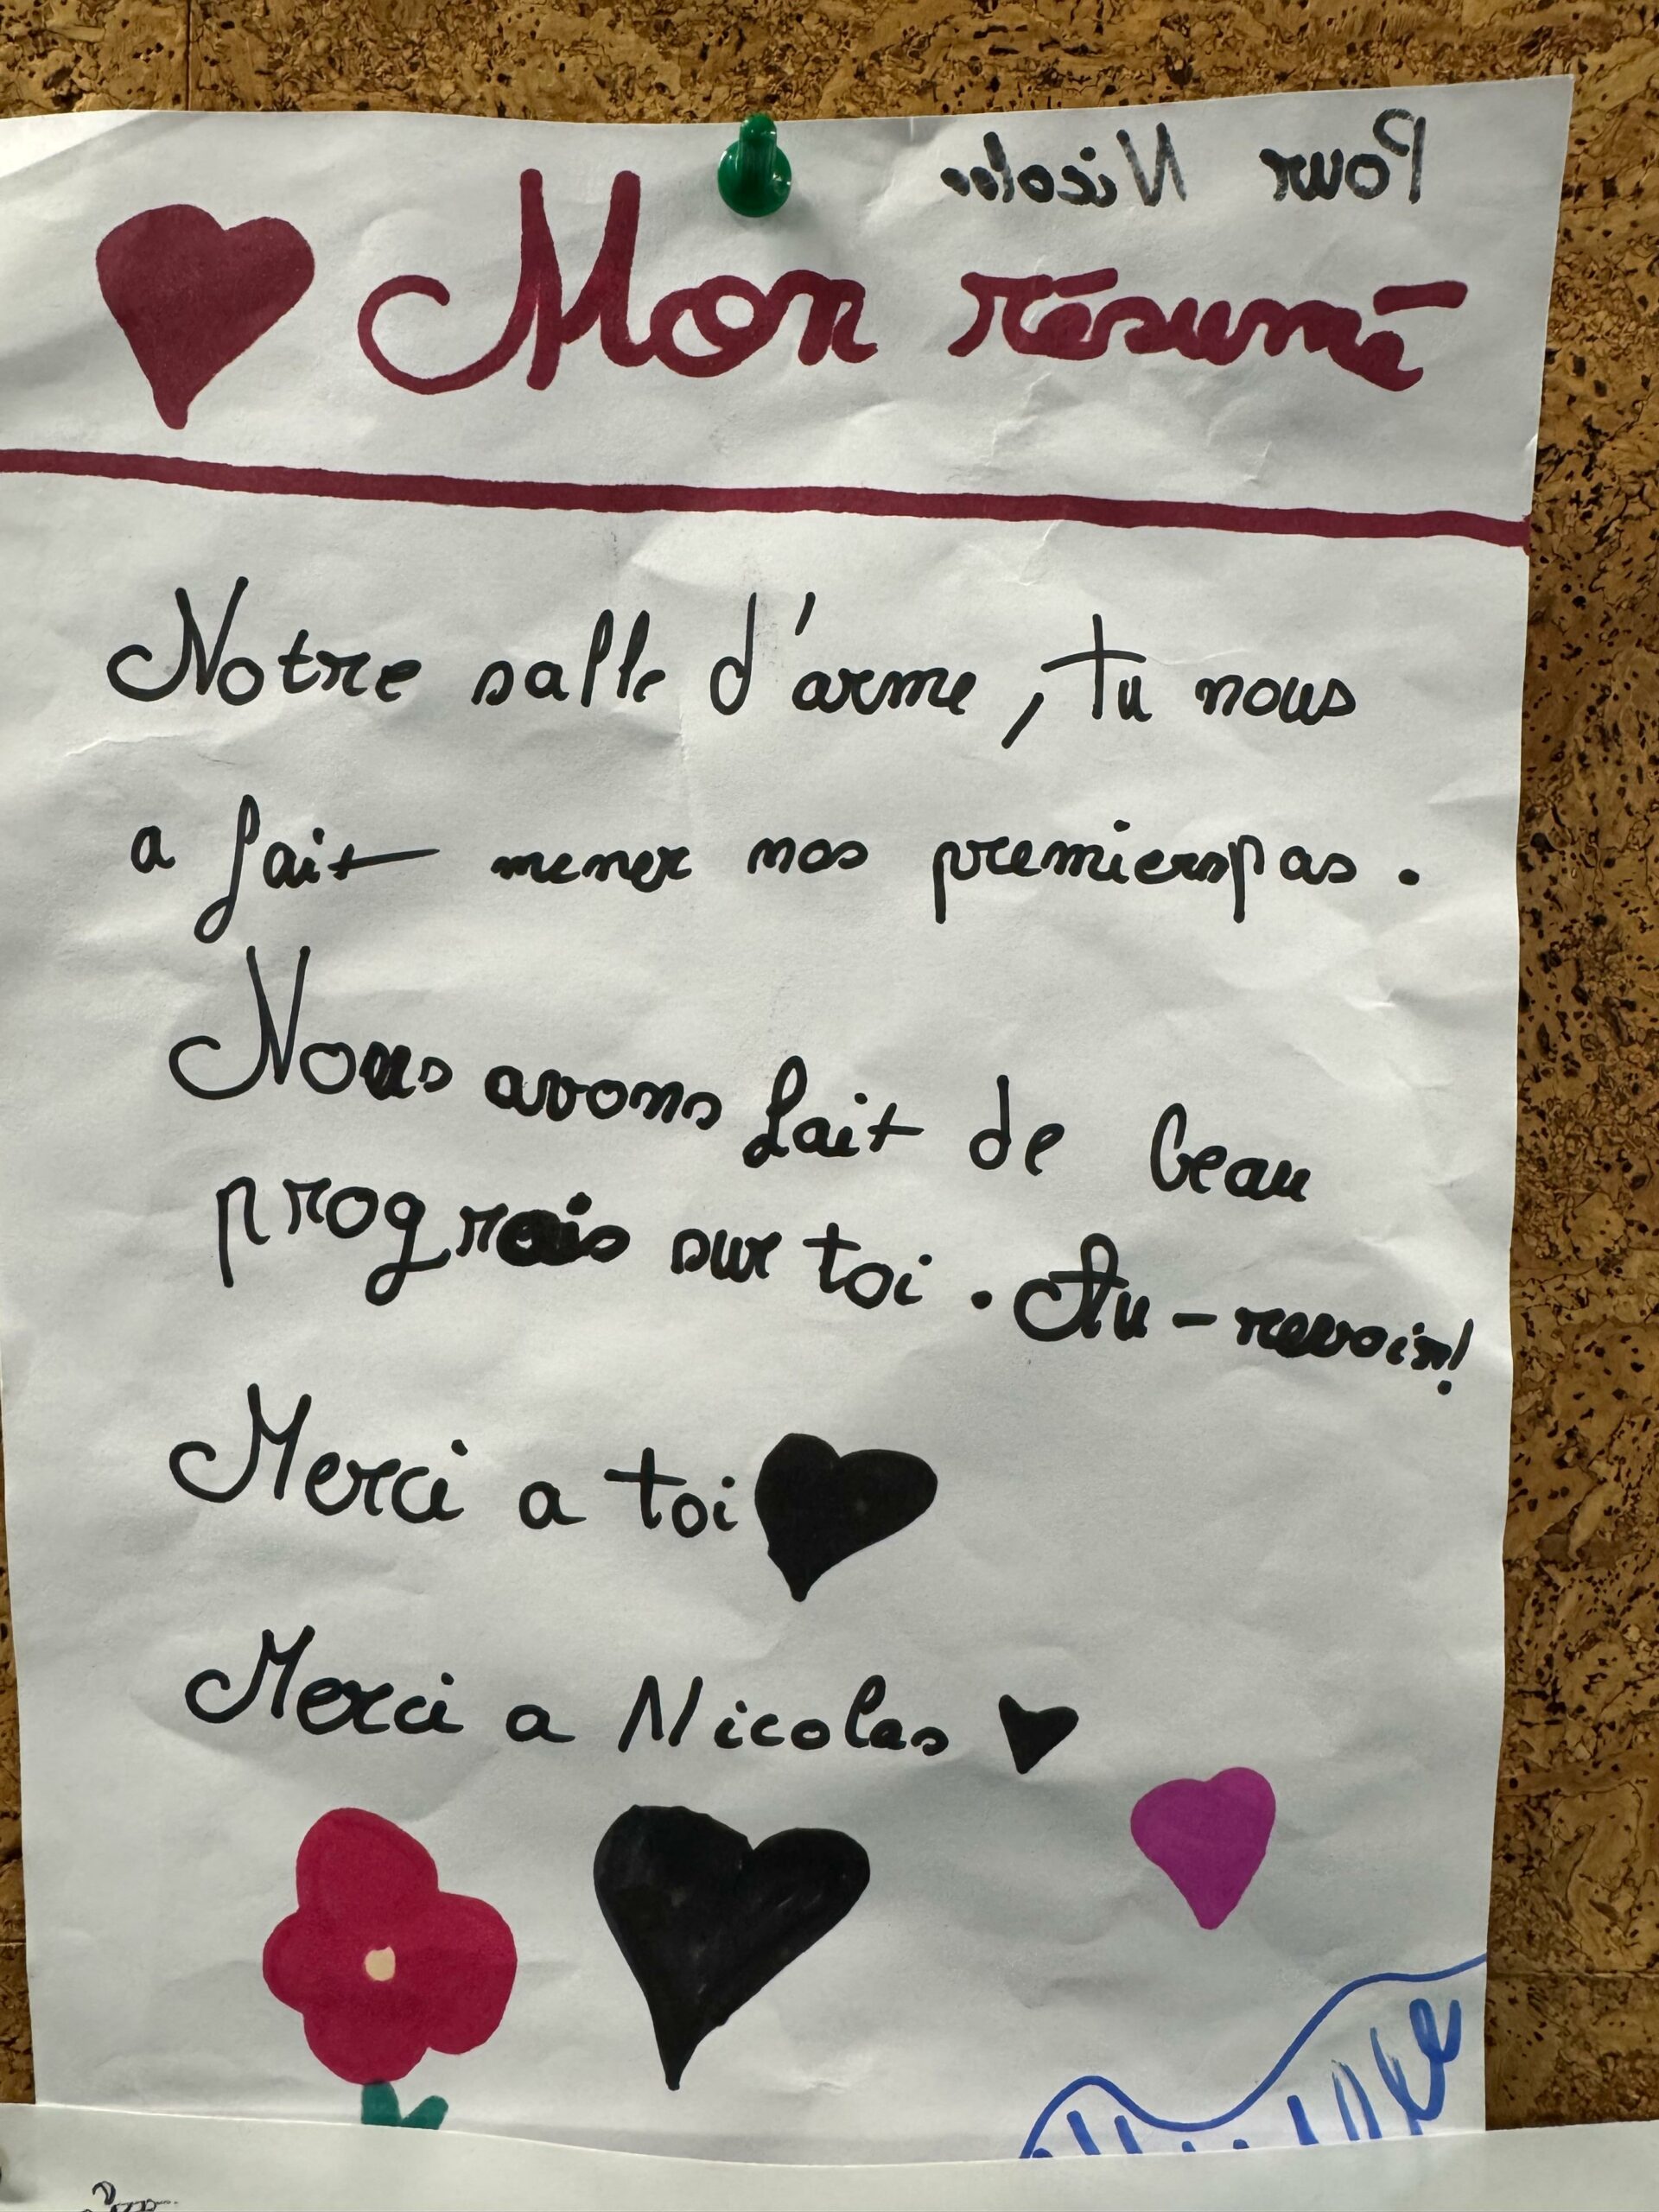 Pour Nicolas
Mon résumé
Notre salle d'arme, tu nous
a fait mener nos premierspas.
Nous avons fait de beau
prograis sur toi. Au-revoir!
Merci a toi
Merci a Nicolas